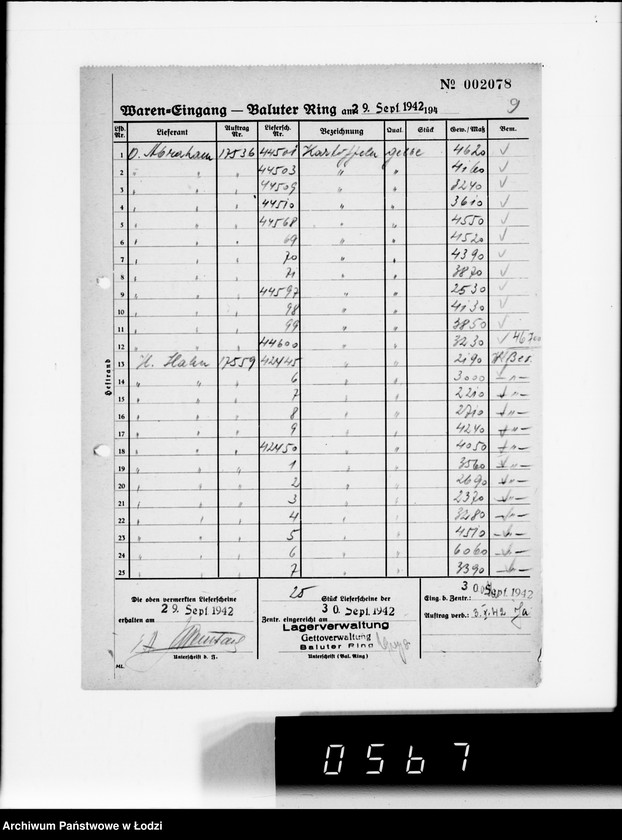 No 002078
9
Waren-Eingang — Baluter Ring am 29. Sept. 1942 194
Lfd. Nr. Lieferant Auftrag Nr. Liefersch. Nr. Bezeichnung Qual. Stück Gew./Maß Bem.
1 O. Abraham 17536 44501 Kartoffeln gelbe 4620 ✓
2 " " " 44503 " " 4160 ✓
3 " " " 44509 " " 3240 ✓
4 " " " 44510 " " 3610 ✓
5 " " " 44568 " " 4550 ✓
6 " " " 69 " " 4520 ✓
7 " " " 70 " " 4390 ✓
8 " " " 71 " " 3870 ✓
9 " " " 44597 " " 2530 ✓
10 " " " 98 " " 4130 ✓
11 " " " 99 " " 3850 ✓
12 " " " 44600 " " 3230 ✓ 46700
13 H. Hahn 17559 42445 " " 2190
14 " " " 6 " " 3000 — " —
15 " " " 7 " " 2210 — " —
16 " " " 8 " " 2710 — " —
17 " " " 9 " " 4240 — " —
18 " " " 42450 " " 4050 — " —
19 " " " 1 " " 3560 — " —
20 " " " 2 " " 2690 — " —
21 " " " 3 " " 2370 — " —
22 " " " 4 " " 3280 — " —
23 " " " 5 " " 4510 — " —
24 " " " 6 " " 6060 — " —
25 " " " 7 " " 3390 — " —
Heftrand
Die oben vermerkten Lieferscheine
29. Sept. 1942
erhalten am
Unterschrift d. J.
ML.
25 Stück Lieferscheine der
30. Sept. 1942
Zentr. eingereicht am
Lagerverwaltung
Gettoverwaltung
Baluter Ring
Unterschrift (Bal. Ring)
30. Sept. 1942
Eing. b. Zentr.:
Auftrag verb.: 3.X.42
0567
Archiwum Państwowe w Łodzi